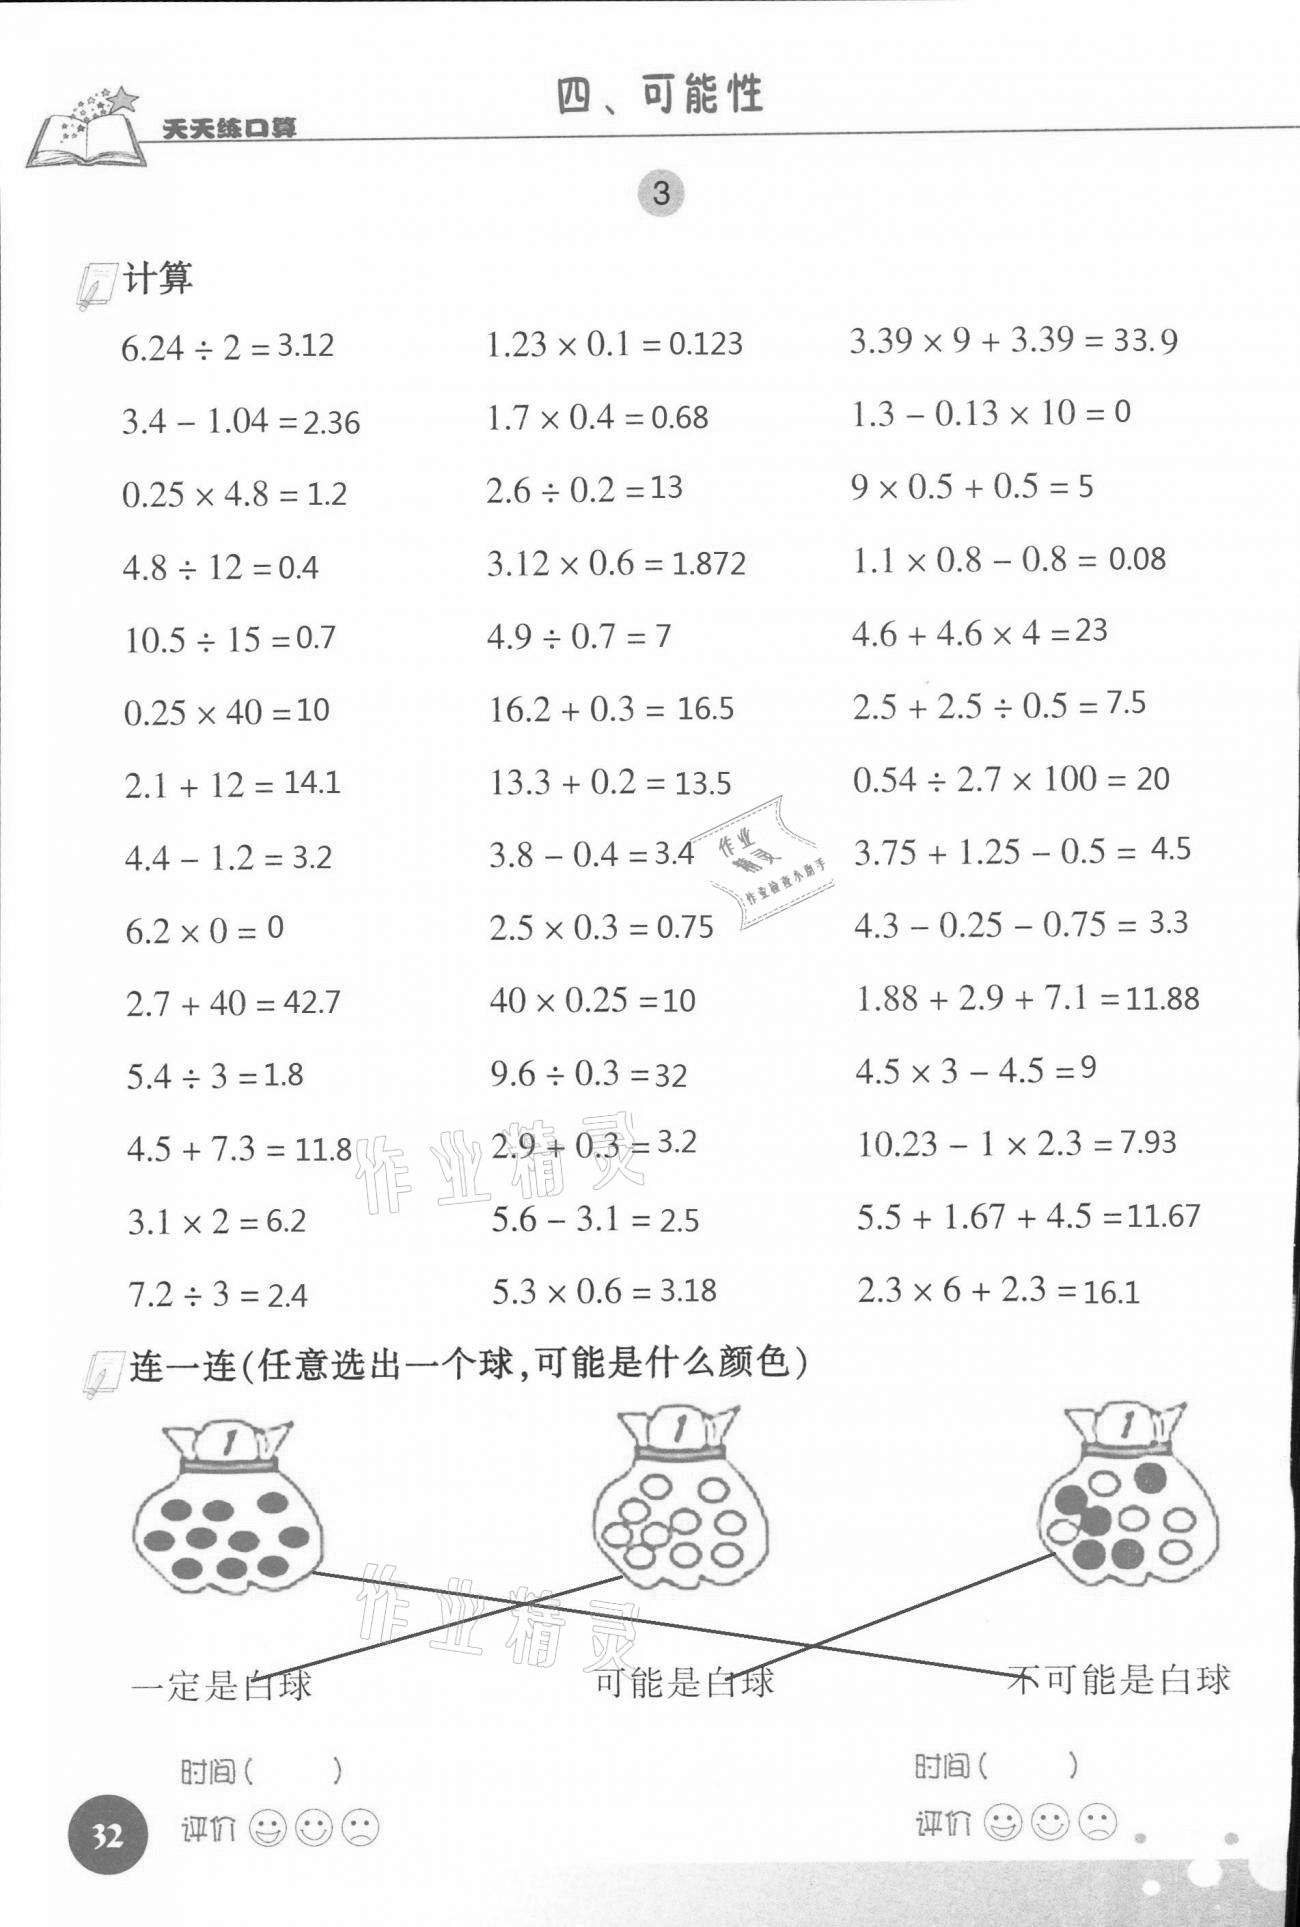 四、可能性
天天练口算
3
计算
6.24 ÷ 2 = 3.12 1.23 × 0.1 = 0.123 3.39 × 9 + 3.39 = 33.9
3.4 − 1.04 = 2.36 1.7 × 0.4 = 0.68 1.3 − 0.13 × 10 = 0
0.25 × 4.8 = 1.2 2.6 ÷ 0.2 = 13 9 × 0.5 + 0.5 = 5
4.8 ÷ 12 = 0.4 3.12 × 0.6 = 1.872 1.1 × 0.8 − 0.8 = 0.08
10.5 ÷ 15 = 0.7 4.9 ÷ 0.7 = 7 4.6 + 4.6 × 4 = 23
0.25 × 40 = 10 16.2 + 0.3 = 16.5 2.5 + 2.5 ÷ 0.5 = 7.5
2.1 + 12 = 14.1 13.3 + 0.2 = 13.5 0.54 ÷ 2.7 × 100 = 20
4.4 − 1.2 = 3.2 3.8 − 0.4 = 3.4 3.75 + 1.25 − 0.5 = 4.5
6.2 × 0 = 0 2.5 × 0.3 = 0.75 4.3 − 0.25 − 0.75 = 3.3
2.7 + 40 = 42.7 40 × 0.25 = 10 1.88 + 2.9 + 7.1 = 11.88
5.4 ÷ 3 = 1.8 9.6 ÷ 0.3 = 32 4.5 × 3 − 4.5 = 9
4.5 + 7.3 = 11.8 2.9 + 0.3 = 3.2 10.23 − 1 × 2.3 = 7.93
3.1 × 2 = 6.2 5.6 − 3.1 = 2.5 5.5 + 1.67 + 4.5 = 11.67
7.2 ÷ 3 = 2.4 5.3 × 0.6 = 3.18 2.3 × 6 + 2.3 = 16.1
作业
精灵
作业检查小助手
作业精灵
连一连(任意选出一个球,可能是什么颜色)
1 1 1
作业精灵
一定是白球 可能是白球 不可能是白球
时间( ) 时间( )
评价 评价
32